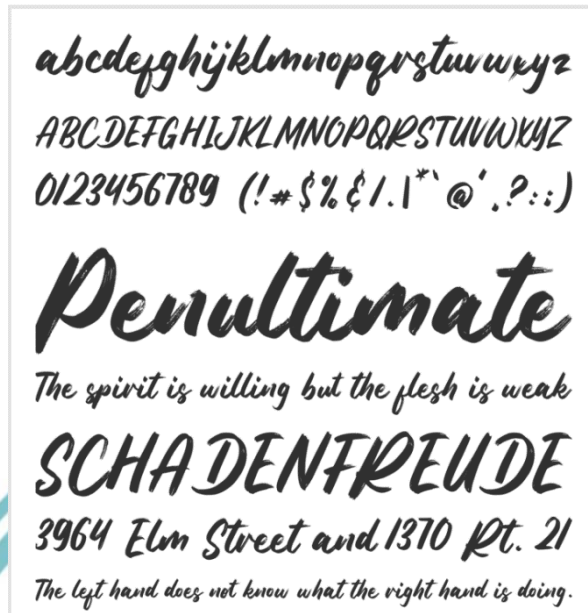 abcdefghijklmnopqrstuvwxyz
ABCDEFGHIJKLMNOPQRSTUVWXYZ
0123456789 (!#$%&/.\*`@',?:;)
Penultimate
The spirit is willing but the flesh is weak
SCHADENFREUDE
3964 Elm Street and 1370 Rt. 21
The left hand does not know what the right hand is doing.